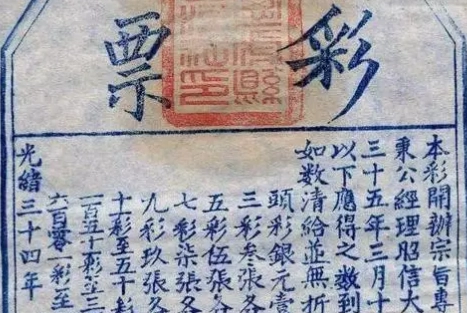 彩票
本彩開辦宗旨專
秉公經理昭信大
三十五年三月十
以下應得之数到
如数清給並無折
頭彩銀元壹
三彩叁張各
五彩伍張各
七彩柒張各
九彩玖張各
十彩至五十彩
一百五十彩至三
六百零一彩至
光緒三十四年